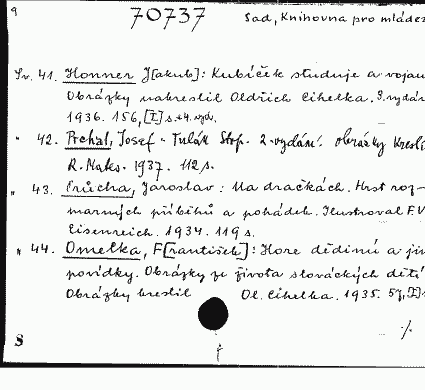 9 70737 Sad, Knihovna pro mládež
Sv. 41. Honner J[akub]: Kubíček studuje a vojan
Obrázky nakreslil Oldřich Cihelka. 3. vydán
1936. 156, [I] s. 4. vyd.
" 42. Prchal, Josef - Tulák Stop. 2. vydání. obrázky Kresli
R. Maks. 1937. 112 s.
" 43. Průcha, Jaroslav: Na dračkách. Hrst roz-
marných příběhů a pohádek. Ilustroval F. V.
Eisenreich. 1934. 119 s.
" 44. Omelka, F[rantišek]: Hore dědinú a ji
povídky. Obrázky ze života slováckých dětí
Obrázky kreslil Ol. Cihelka. 1935. 57, [I]
S ./.